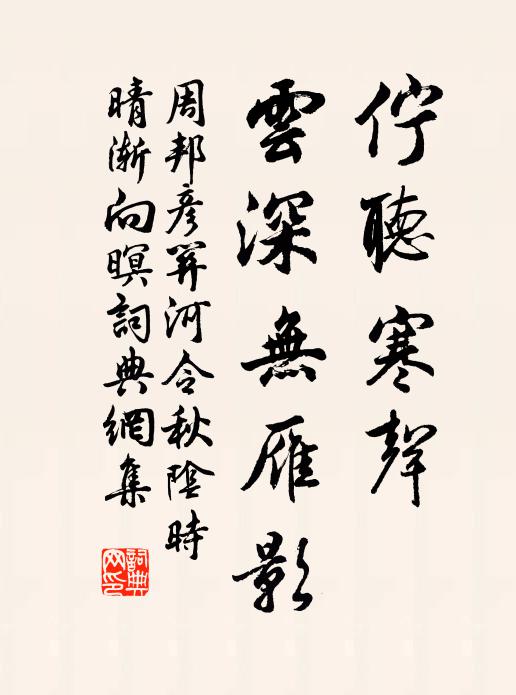 佇聽寒聲
雲深無雁影
周邦彥関河令秋陰時
晴漸向暝詞典網集
詞典网印